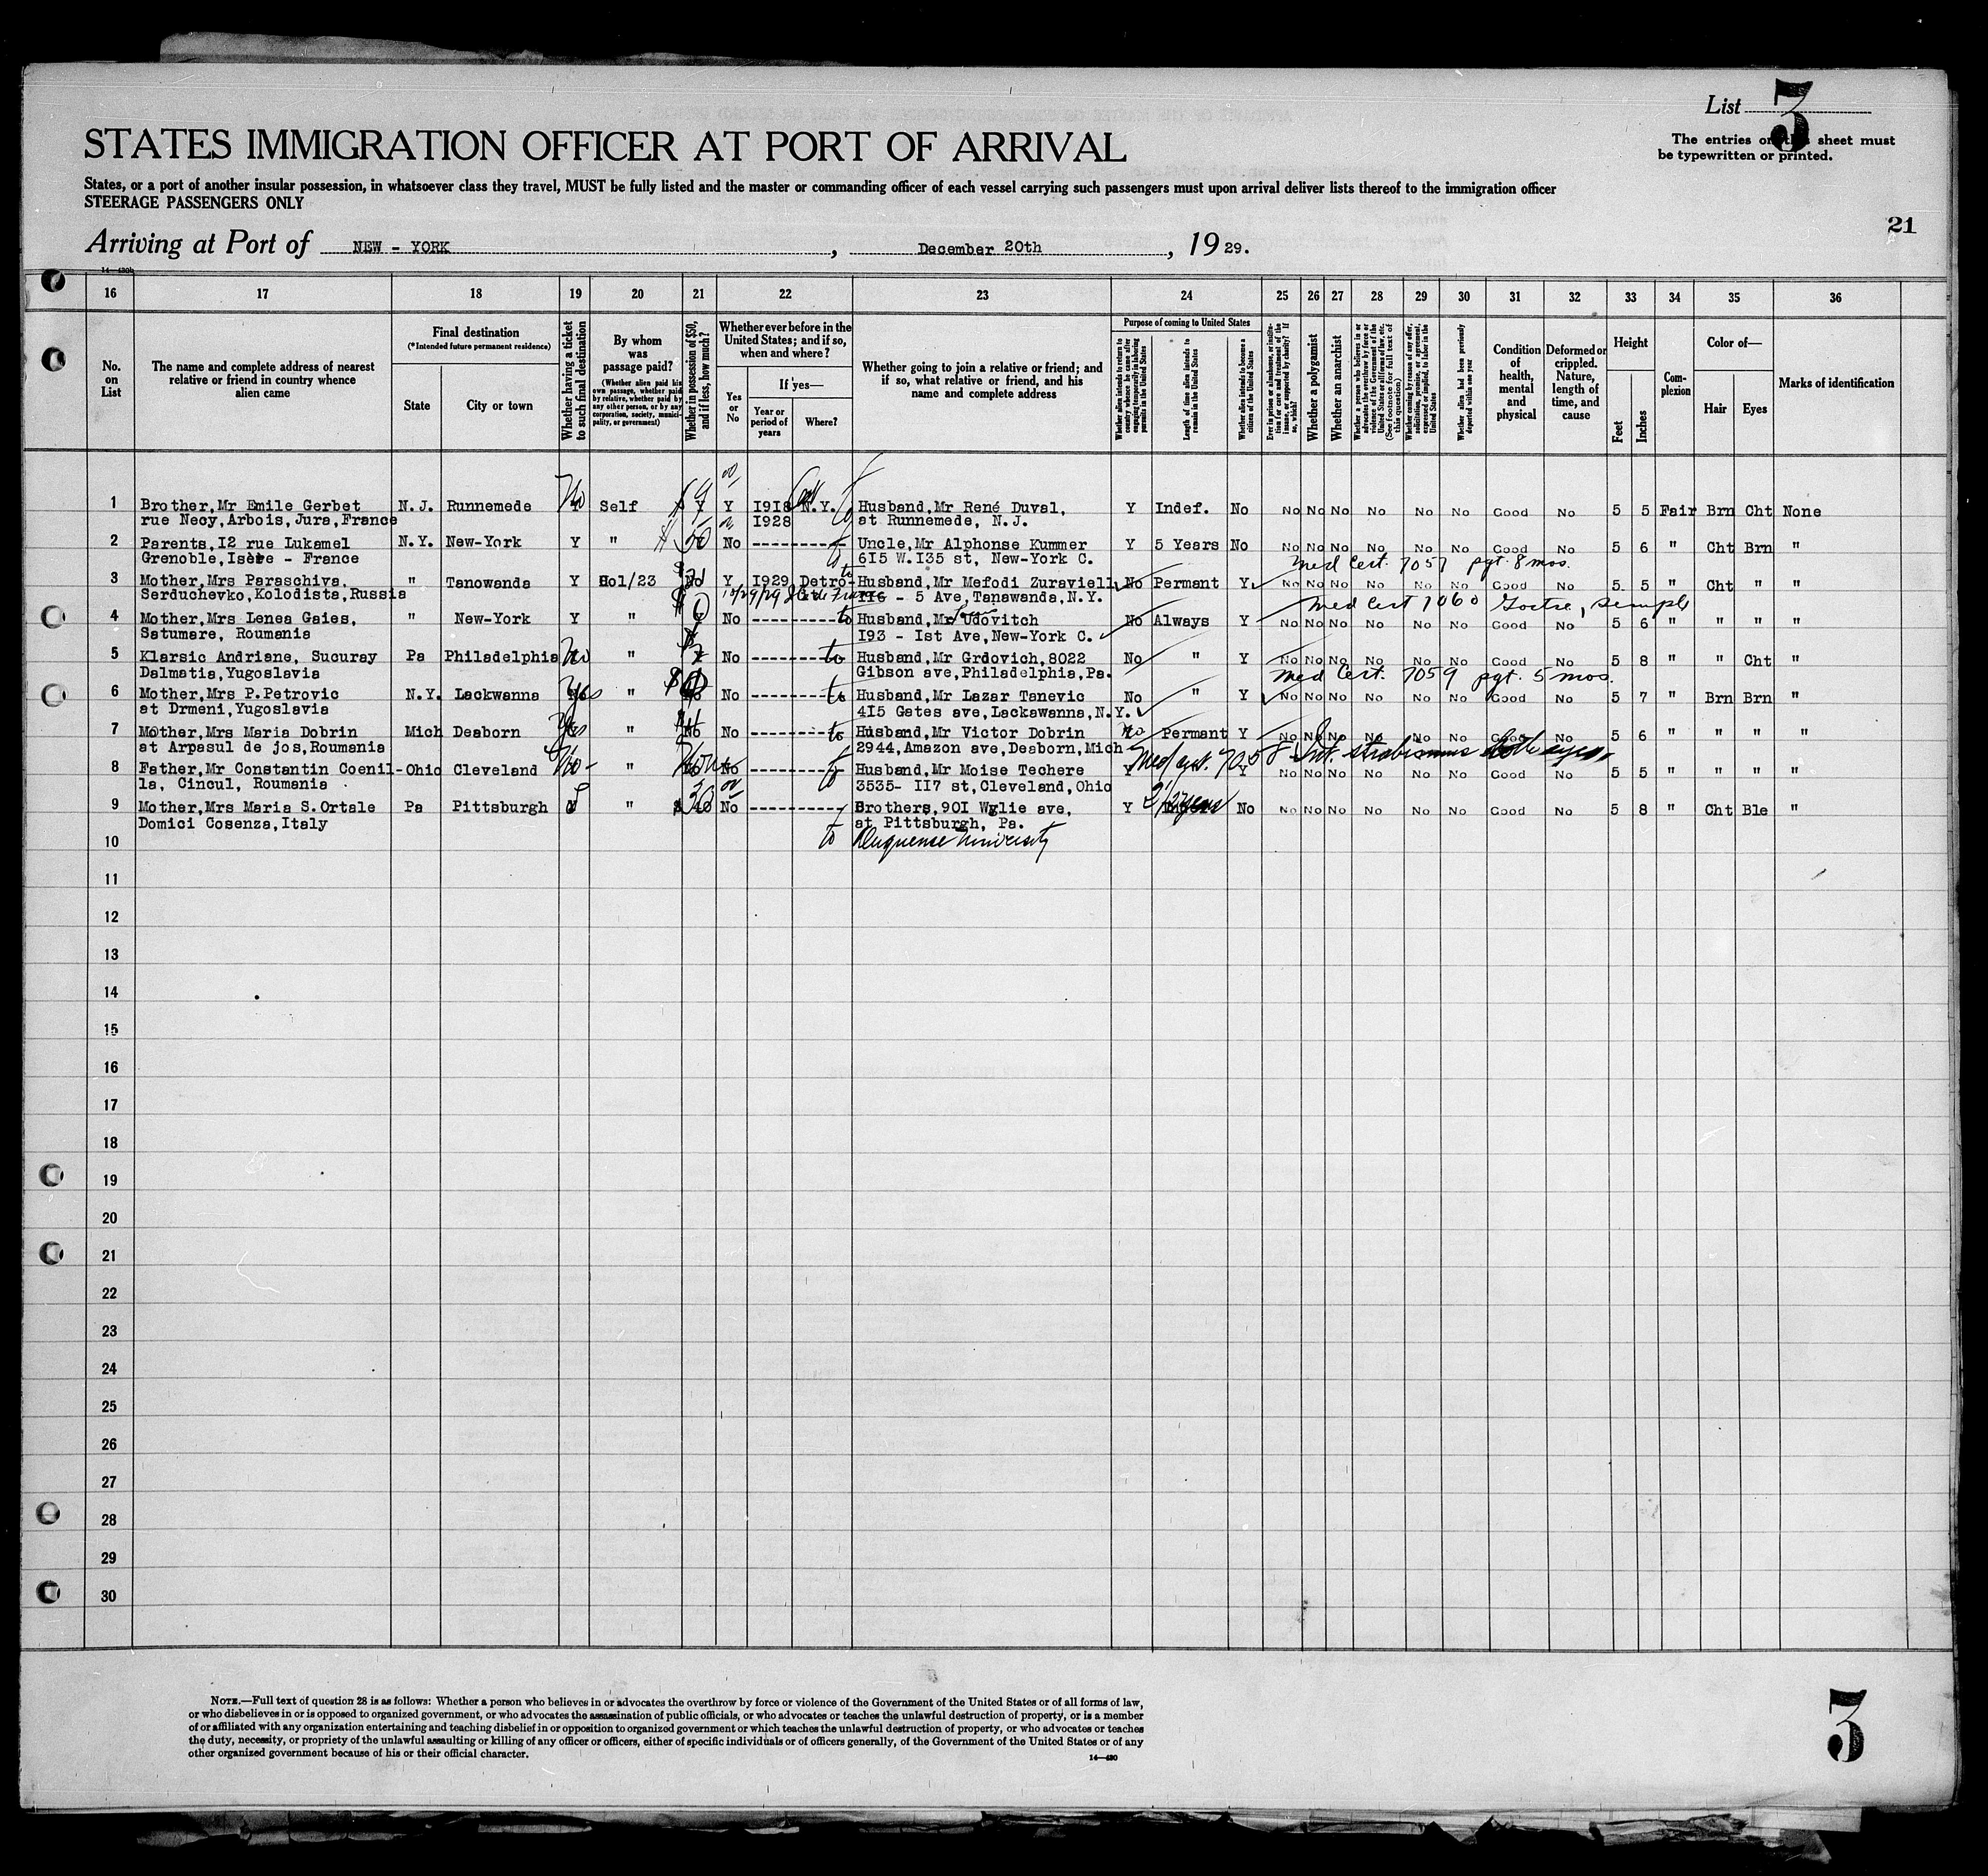 List 3
The entries on this sheet must
be typewritten or printed.
STATES IMMIGRATION OFFICER AT PORT OF ARRIVAL
States, or a port of another insular possession, in whatsoever class they travel, MUST be fully listed and the master or commanding officer of each vessel carrying such passengers must upon arrival deliver lists thereof to the immigration officer
STEERAGE PASSENGERS ONLY
21
Arriving at Port of NEW - YORK, December 20th, 19 29.
16 17 18 19 20 21 22 23 24 25 26 27 28 29 30 31 32 33 34 35 36
No. on List
The name and complete address of nearest relative or friend in country whence alien came
Final destination
(*Intended future permanent residence)
State
City or town
Whether having a ticket to such final destination
By whom was passage paid?
(Whether alien paid his own passage, whether paid by relative, whether paid by any other person, or by any corporation, society, municipality, or government)
Whether in possession of $50, and if less, how much?
Whether ever before in the United States; and if so, when and where?
Yes or No
If yes—
Year or period of years
Where?
Whether going to join a relative or friend; and if so, what relative or friend, and his name and complete address
Purpose of coming to United States
Whether alien intends to return to country whence he came after engaging temporarily in laboring pursuits in the United States
Length of time alien intends to remain in the United States
Whether alien intends to become a citizen of the United States
Ever in prison or almshouse, or institution for care and treatment of the insane, or supported by charity? If so, which?
Whether a polygamist
Whether an anarchist
Whether a person who believes in or advocates the overthrow by force or violence of the Government of the United States or all forms of law, etc. (See footnote for full text of this question)
Whether coming by reason of any offer, solicitation, promise, or agreement, expressed or implied, to labor in the United States
Whether alien had been previously deported within one year
Condition of health, mental and physical
Deformed or crippled. Nature, length of time, and cause
Height
Feet
Inches
Complexion
Color of—
Hair
Eyes
Marks of identification
1 Brother,Mr Emile Gerbet N.J. Runnemede No Self Y I918 N.Y. Husband,Mr René Duval, Y Indef. No No No No No No No Good No 5 5 Fair Brn Cht None
rue Necy,Arbois,Jura,France I928 at Runnemede, N.J.
2 Parents,I2 rue Lukamel N.Y. New-York Y " 50 No ---------- Uncle,Mr Alphonse Kummer Y 5 Years No No No No No No No Good No 5 6 " Cht Brn "
Grenoble,Isère - France to 6I5 W.I35 st, New-York C.
Med Cert. 7057 pgt. 8 mos.
3 Mother,Mrs Paraschiva, " Tanowanda Y Hol/23 No Y I929 Detroi- Husband,Mr Mefodi Zuraviell No Permant Y No No No No No No Good No 5 5 " Cht " "
Serduchevko,Kolodista,Russia II6 - 5 Ave,Tanawanda,N.Y.
Med Cert 7060 Goitre, simple
4 Mother,Mrs Lenea Gaies, " New-York Y " No ---------- to Husband,Mr Udovitch No Always Y No No No No No No Good No 5 6 " " " "
Satumare, Roumania I93 - Ist Ave,New-York C.
5 Klarsic Andriane, Sucuray Pa Philadelphia No " No ---------- to Husband,Mr Grdovich,8022 No " Y No No No No No No Good No 5 8 " " Cht "
Dalmatia,Yugoslavia Gibson ave,Philadelphia,Pa.
Med Cert. 7059 pgt. 5 mos.
6 Mother,Mrs P.Petrovic N.Y. Lackwanna Yes " No ---------- to Husband,Mr Lazar Tanevic No " Y No No No No No No Good No 5 7 " Brn Brn "
at Drmeni,Yugoslavia 4I5 Gates ave,Lackawanna,N.Y.
7 Mother,Mrs Maria Dobrin Mich Deaborn Yes " No ---------- to Husband,Mr Victor Dobrin No Permant Y No No No No No No Good No 5 6 " " " "
at Arpasul de jos,Roumania 2944,Amazon ave,Deaborn,Mich
Med cert. 7058 Int. strabismus both eyes
8 Father,Mr Constantin Coenil- Ohio Cleveland No " No ---------- to Husband,Mr Moise Techere Y Y No No No No No No Good No 5 5 " " " "
la, Cincul, Roumania 3535- II7 st,Cleveland,Ohio
9 Mother,Mrs Maria S.Ortale Pa Pittsburgh " No ---------- Brothers,90I Wylie ave, Y 2 1/2 years No No No No No No No Good No 5 8 " Cht Ble "
Domici Cosenza,Italy at Pittsburgh, Pa.
10 to Duquense University
11
12
13
14
15
16
17
18
19
20
21
22
23
24
25
26
27
28
29
30
NOTE.—Full text of question 28 is as follows: Whether a person who believes in or advocates the overthrow by force or violence of the Government of the United States or of all forms of law,
or who disbelieves in or is opposed to organized government, or who advocates the assassination of public officials, or who advocates or teaches the unlawful destruction of property, or is a member
of or affiliated with any organization entertaining and teaching disbelief in or opposition to organized government or which teaches the unlawful destruction of property, or who advocates or teaches
the duty, necessity, or propriety of the unlawful assaulting or killing of any officer or officers, either of specific individuals or of officers generally, of the Government of the United States or of any
other organized government because of his or their official character.
14—430
3